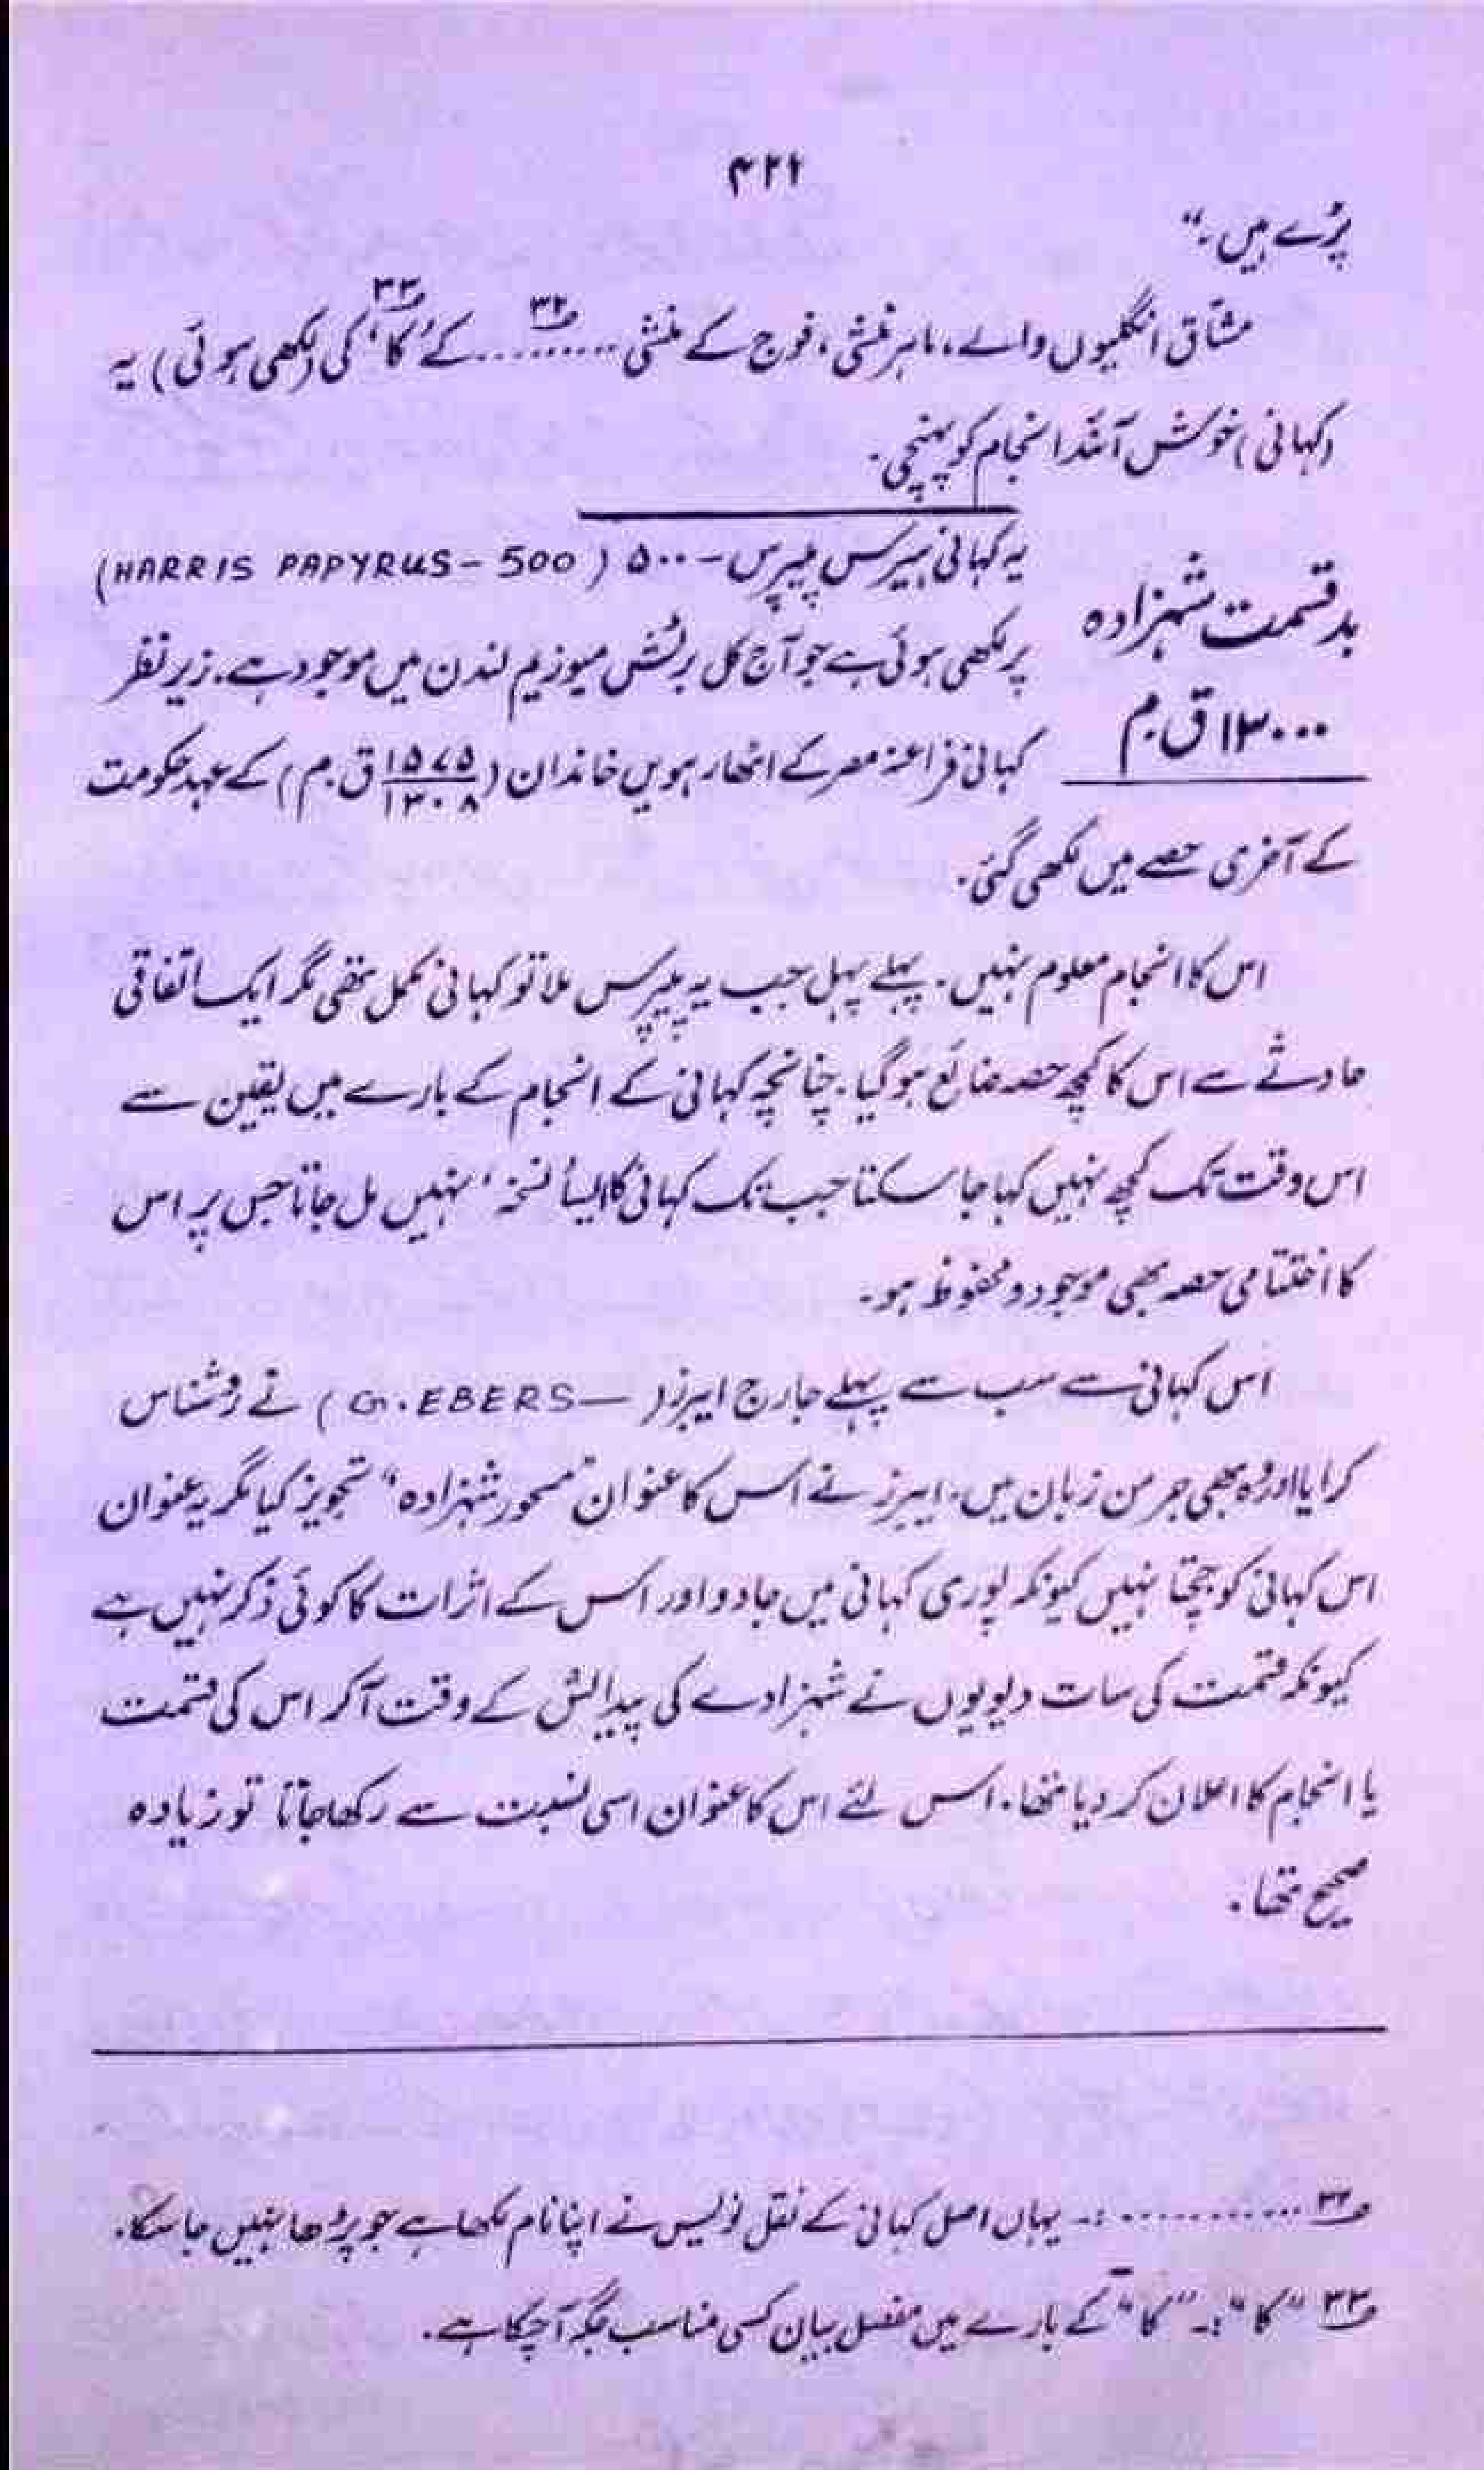 ۴۲۱
پڑے ہیں۔“
مشاق انگلیوں والے، ماہر منشی، فوج کے منشی ..........۳۲ کے ’کا‘۳۳ کی (لکھی ہوئی) یہ
(کہانی) خوش آئند انجام کو پہنچی۔
بدقسمت شہزادہ
۱۳۰۰۰ ق.م
یہ کہانی ہیرس پیپرس - ۵۰۰ (HARRIS PAPYRUS - 500)
پر لکھی ہوئی ہے جو آج کل برٹش میوزیم لندن میں موجود ہے۔ زیر نظر
کہانی فراعنہ مصر کے اٹھارہویں خاندان (۱۵۷۵/۱۳۰۸ ق.م) کے عہد حکومت
کے آخری حصے میں لکھی گئی۔
اس کا انجام معلوم نہیں۔ پہلے پہل جب یہ پیپرس ملا تو کہانی مکمل تھی مگر ایک اتفاقی
حادثے سے اس کا کچھ حصہ ضائع ہوگیا۔ چنانچہ کہانی کے انجام کے بارے میں یقین سے
اس وقت تک کچھ نہیں کہا جاسکتا جب تک کہانی کا ایسا ’نسخہ‘ نہیں مل جاتا جس پر اس
کا اختتامی حصہ بھی موجود و محفوظ ہو۔
اس کہانی سے سب سے پہلے جارج ایبرز (G. EBERS —) نے روشناس
کرایا اور وہ بھی جرمن زبان میں۔ ایبرز نے اس کا عنوان ”مسحور شہزادہ“ تجویز کیا مگر یہ عنوان
اس کہانی کو جچتا نہیں کیونکہ پوری کہانی میں جادو اور اس کے اثرات کا کوئی ذکر نہیں ہے
کیونکہ قسمت کی سات دیویوں نے شہزادے کی پیدائش کے وقت آکر اس کی قسمت
یا انجام کا اعلان کر دیا تھا۔ اس لئے اس کا عنوان اسی نسبت سے رکھا جاتا تو زیادہ
صحیح تھا۔
۳۲ ............ :۔ یہاں اصل کہانی کے نقل نویس نے اپنا نام لکھا ہے جو پڑھا نہیں جاسکا۔
۳۳ ”کا“ :۔ ”کا“ کے بارے میں مفصل بیان کسی مناسب جگہ آچکا ہے۔